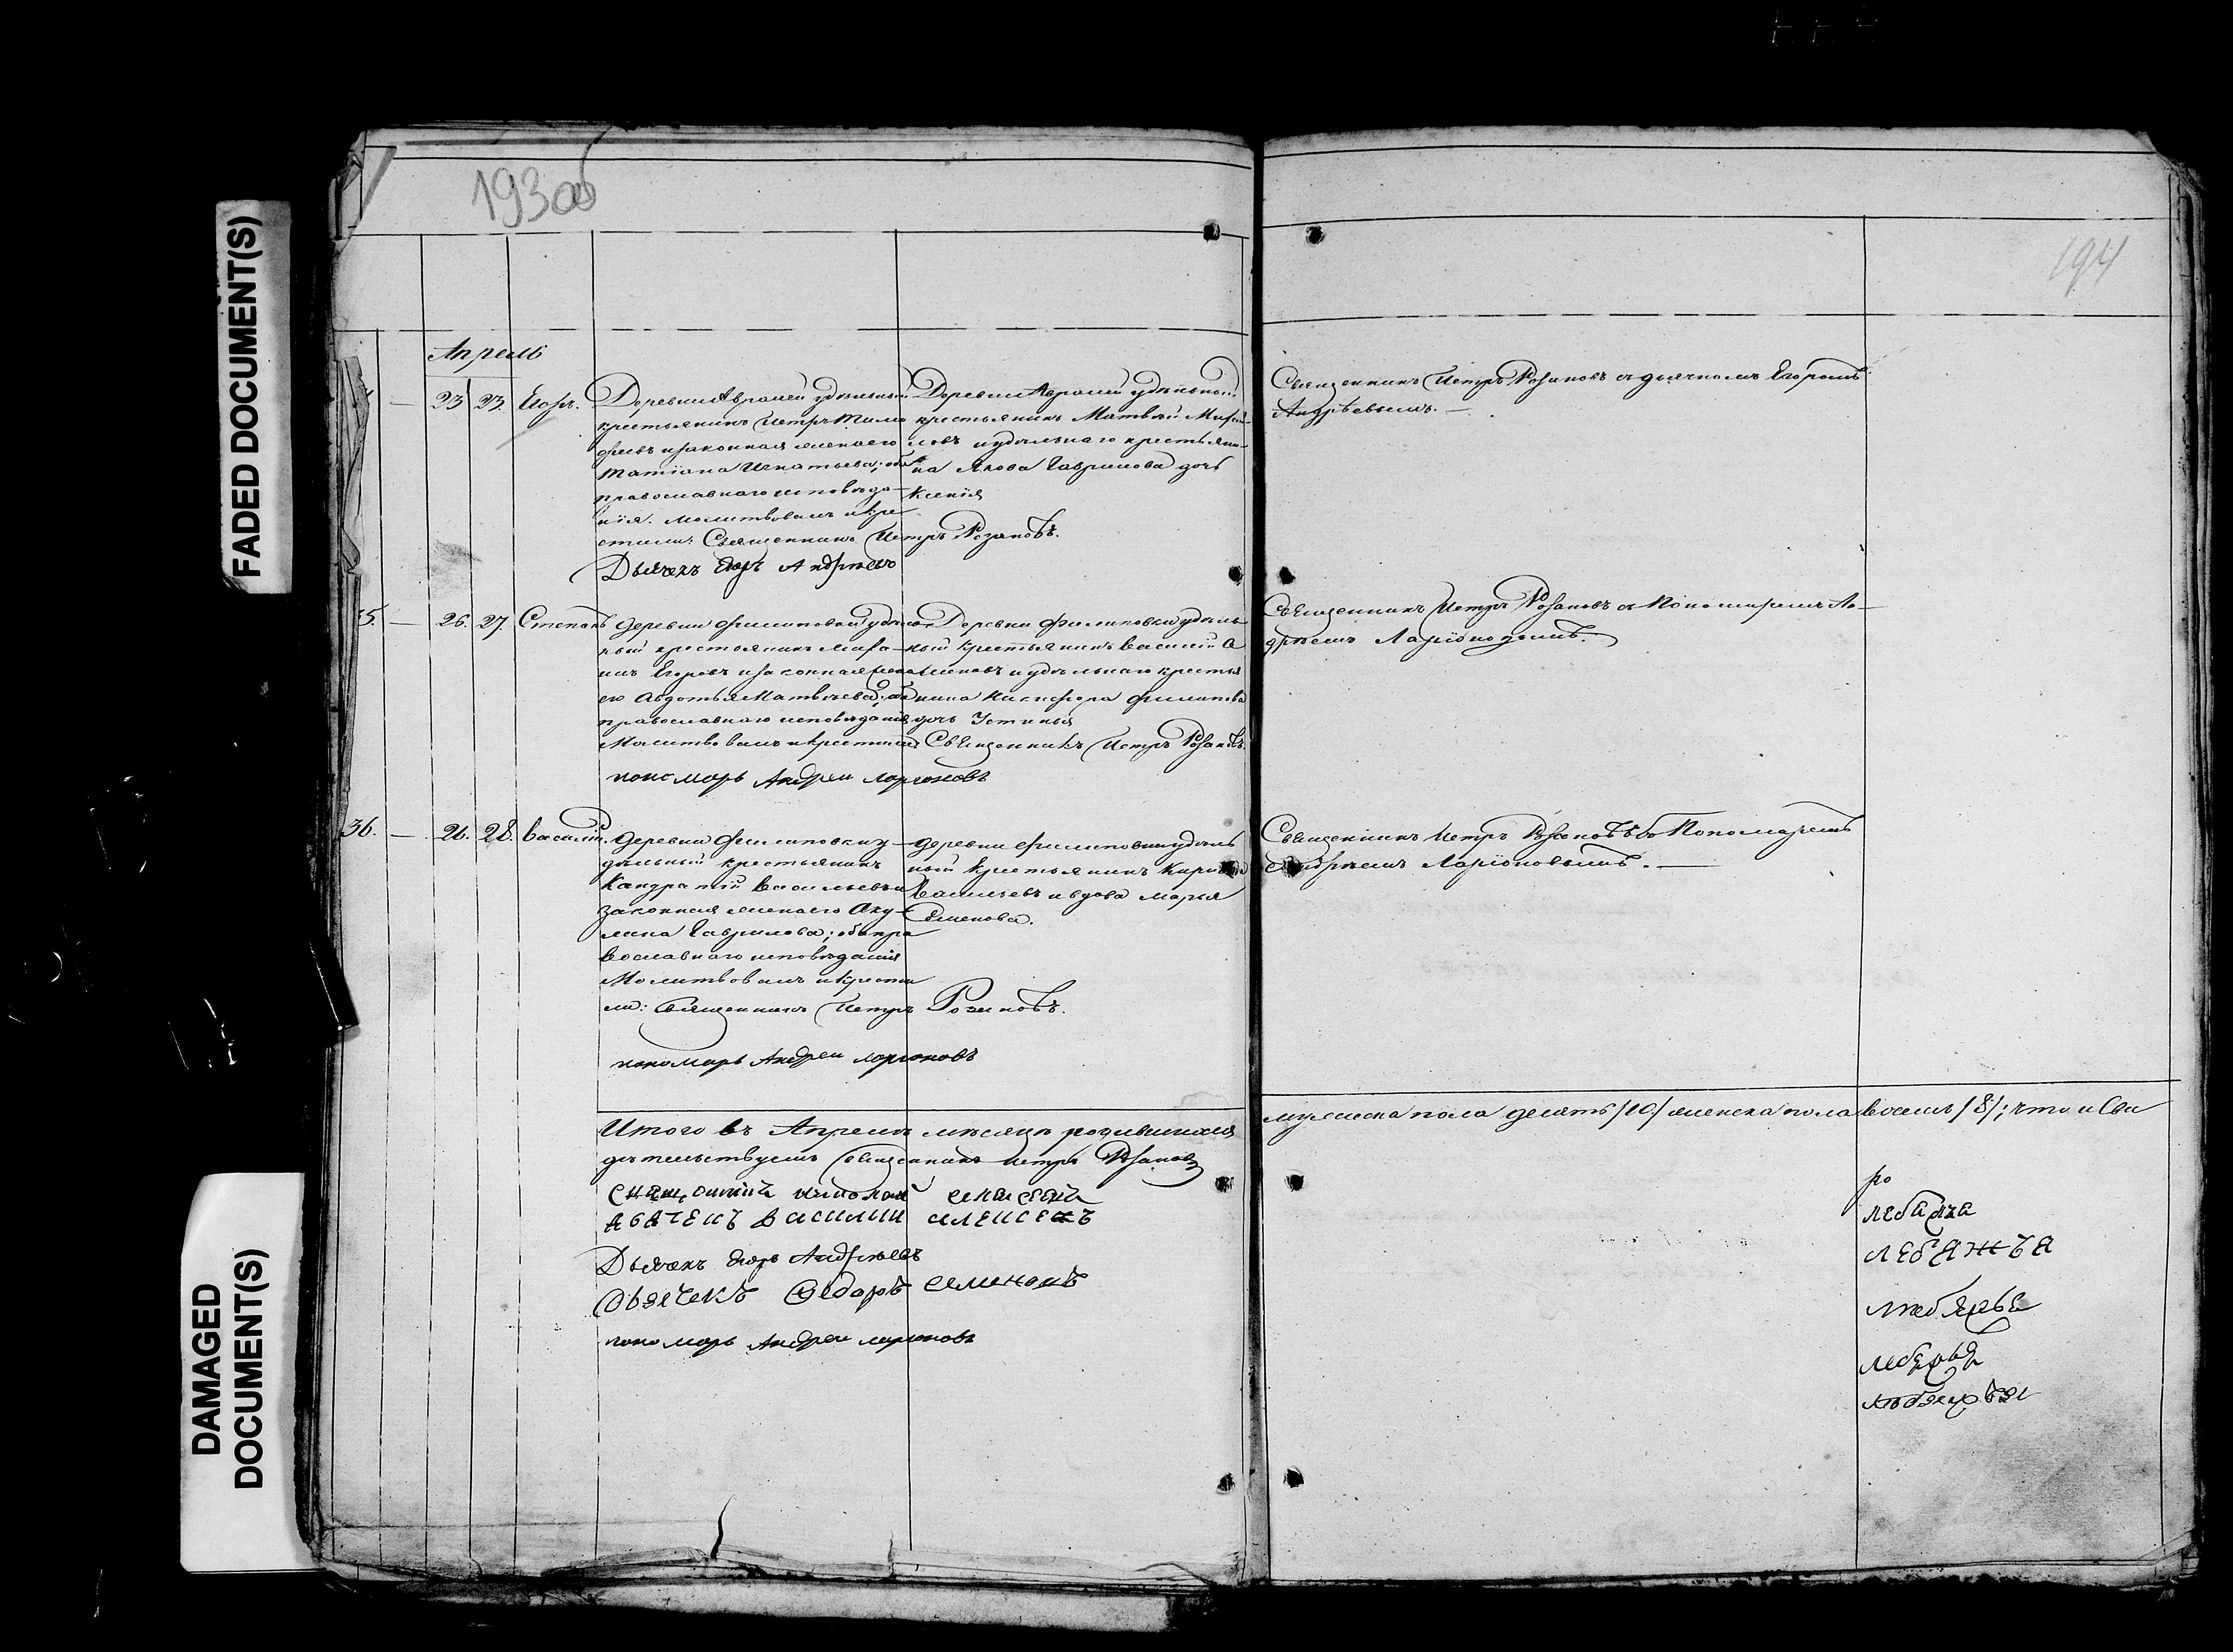 FADED DOCUMENT(S)
DAMAGED DOCUMENT(S)
193об
194
Апрель
23 23. Егоръ.
Деревни Авралей удѣльный
крестьянинъ Петръ Тимо
феевъ и законная жена его
Татіана Игнатьева; оба
православнаго исповѣда-
нія. Молитвовалъ и кре
стили: Священникъ Петръ Розановъ.
Дьячекъ Егоръ Андреевъ
Деревни Авралей удѣльный
крестьянинъ Матвей Михай-
ловъ и удѣльнаго крестьяни-
на Якова Гаврилова дочь
Ксенія
Священникъ Петръ Розановъ съ дьячкомъ Егоромъ
Андрѣевымъ.
35. — 26. 27. Степанъ
Деревни Филиповки удѣль
ный крестьянинъ
Егоровъ и законная жена
его Авдотья Матвѣева; оба
православнаго исповѣданія
Молитвовалъ и крестили Священникъ Петръ Розановъ.
пономарь Андреи Ларионовъ
Деревни Филиповки удѣль
ный крестьянинъ Василій
и удѣльнаго крестья
нина Никифора Филипова
дочь Устинья
Священникъ Петръ Розановъ съ Пономаремъ Ан-
дрѣемъ Ларіоновымъ.
36. — 26. 28. Василій.
Деревни Филиповки у-
дѣльный крестьянинъ
Кандратій Васильевъ и
законная жена его Аку-
лина Гаврилова; оба пра
вославнаго исповѣданія
Молитвовалъ и крести
ли: Священникъ Петръ Розановъ.
пономарь Андреи Ларионовъ
деревни Филиповки удѣль
ный крестьянинъ
Васильевъ и вдова Марья
Семенова.
Священникъ Петръ Розановъ со Пономаремъ
Андрѣемъ Ларіоновымъ.
Итого въ Апрелѣ мѣсяцѣ родившихся
мужеска пола десять /10/ женска пола восемь /8/; что и Сви
дѣтельствуемъ Священникъ Петръ Розановъ
Василии
Дьячекъ Егоръ Андреевъ
Дьячекъ Федоръ Семеновъ
пономарь Андреи Ларионовъ